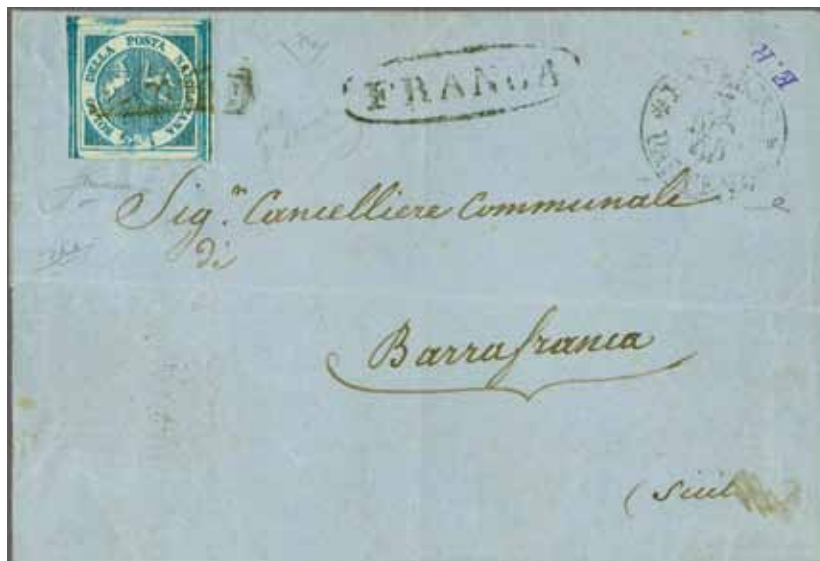 BOLLO DELLA POSTA NAPOLETANA
FRANCA
E.R
Sig.n Cancelliere Communale
di
Barrafranca
(Sicil